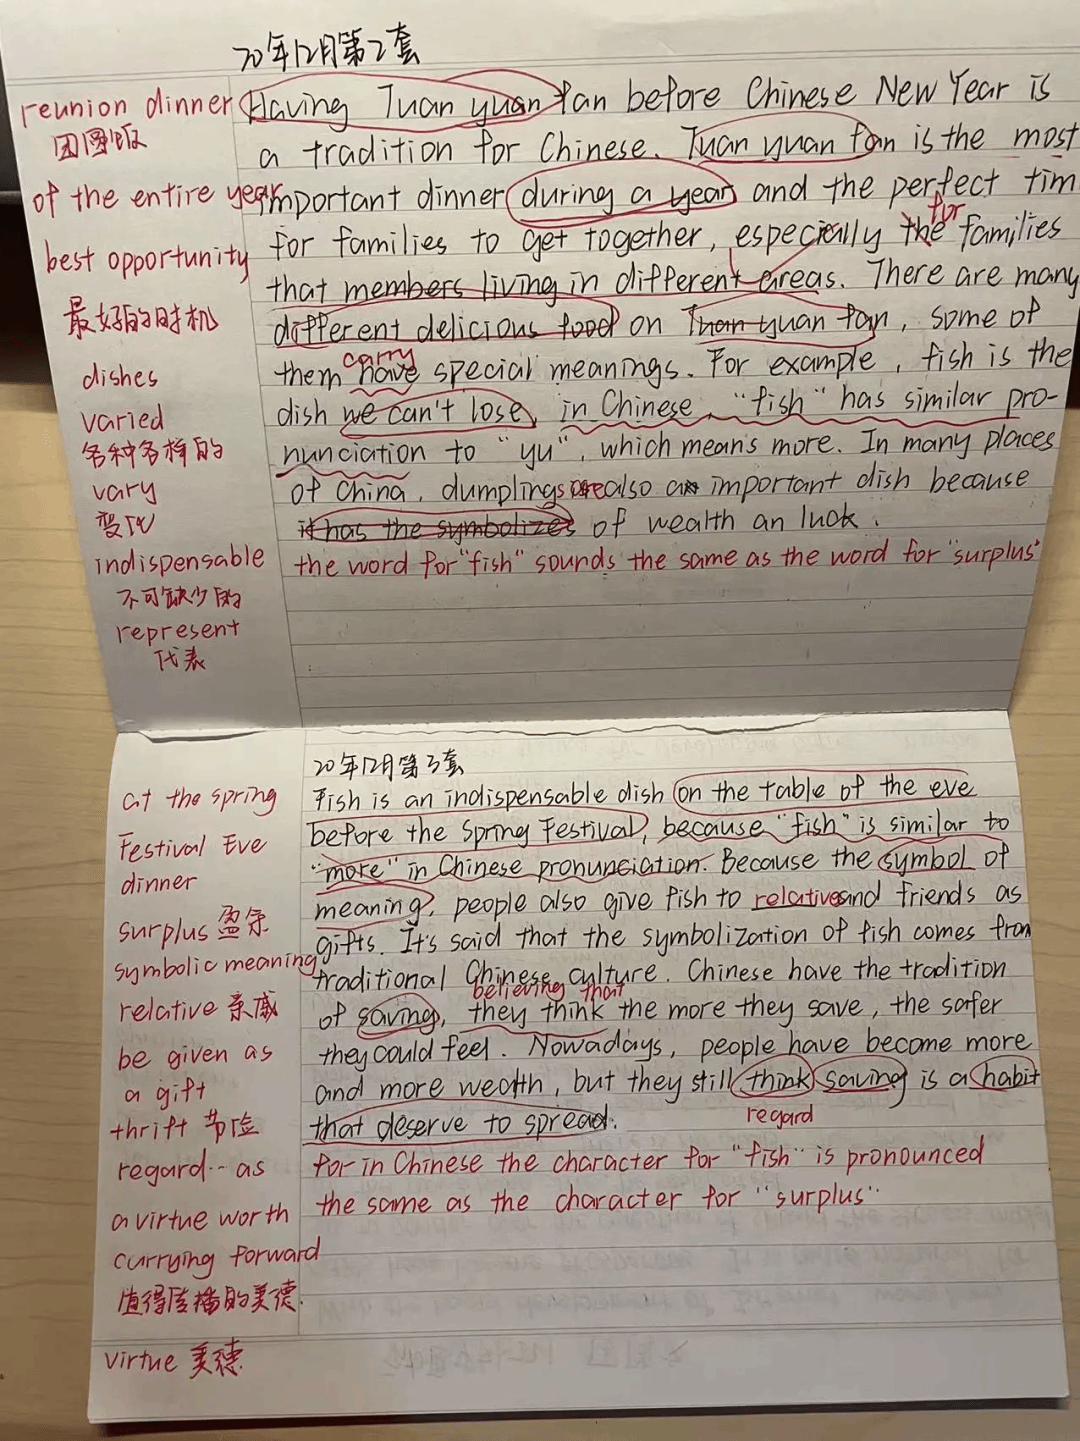 20年12月第2套
reunion dinner
团圆饭
of the entire year
best opportunity
最好的时机
dishes
varied
各种各样的
vary
变化
indispensable
不可缺少的
represent
代表
Having Tuan yuan fan before Chinese New Year is
a tradition for Chinese. Tuan yuan fan is the most
important dinner during a year and the perfect tim
for
for families to get together, especially the families
that members living in different areas. There are many
different delicious food on Tuan yuan fan, some of
carry
them have special meanings. For example, fish is the
dish we can't lose, in Chinese, "fish" has similar pro-
nunciation to "yu", which means more. In many places
of China, dumplings are also an important dish because
it has the symbolizes of wealth an luck.
the word for "fish" sounds the same as the word for "surplus"
20年12月第3套
at the spring
Festival Eve
dinner
surplus 盈余
symbolic meaning
relative 亲戚
be given as
a gift
thrift 节俭
regard... as
a virtue worth
carrying forward
值得传播的美德.
virtue 美德
Fish is an indispensable dish on the table of the eve
before the Spring Festival, because "fish" is similar to
"more" in Chinese pronunciation. Because the symbol of
meaning, people also give fish to relatives and friends as
gifts. It's said that the symbolization of fish comes from
traditional Chinese culture. Chinese have the tradition
believing that
of saving, they think the more they save, the safer
they could feel. Nowadays, people have become more
and more wealth, but they still think saving is a habit
that deserve to spread.
regard
for in Chinese the character for "fish" is pronounced
the same as the character for "surplus"